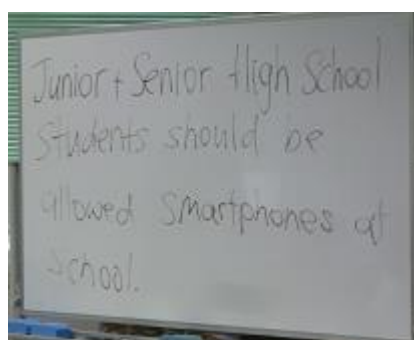 Junior + Senior High School
Students should be
allowed smartphones at
School.